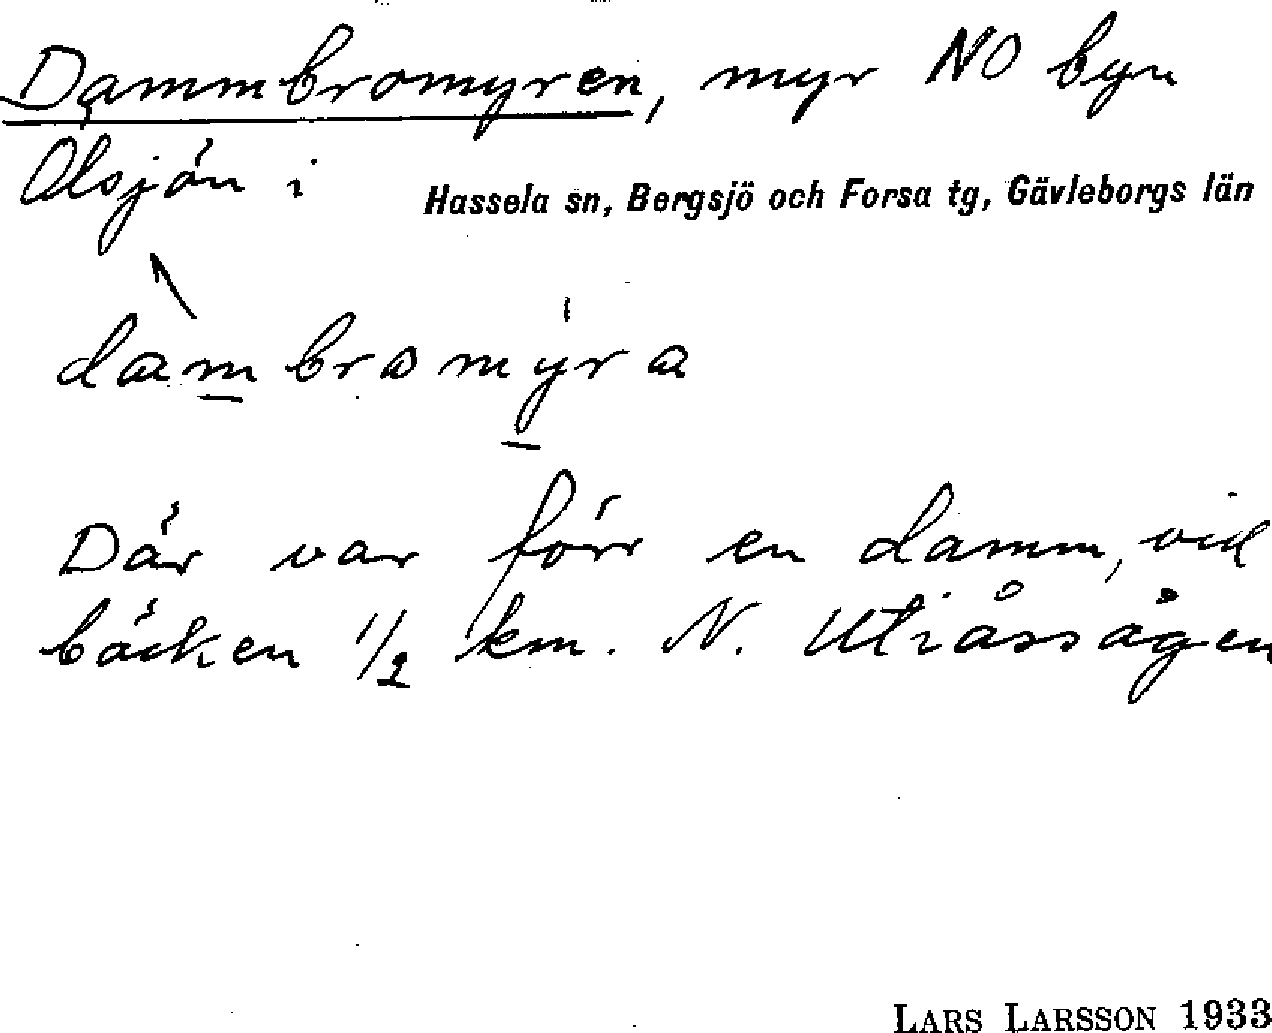 Dammbromyren, myr NO byn
Älsjön i Hassela sn, Bergsjö och Forsa tg, Gävleborgs län
dàmbromýra
Där var förr en damm, vid
bäcken 1/2 km. N.
LARS LARSSON 1933